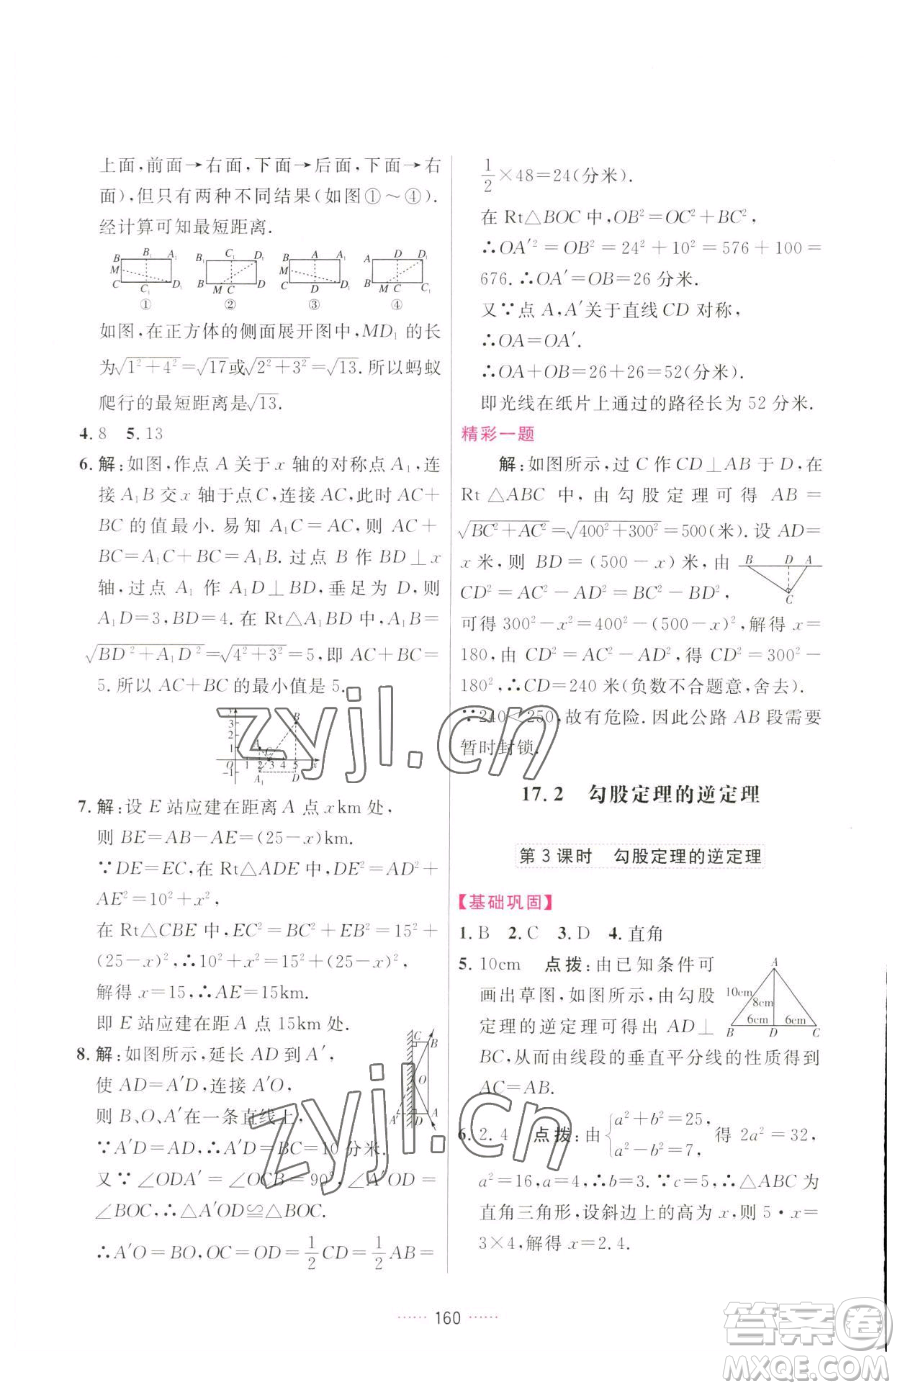 上面,前面→右面,下面→后面,下面→右
面),但只有两种不同结果(如图①~④).
经计算可知最短距离.
B B₁ A₁
M
C C₁ D₁
①
B C₁ D₁
A M C
②
B A A₁
M
C D D₁
③
A D D₁
B M C C₁
④
如图,在正方体的侧面展开图中,MD₁的长
为√(1²+4²)=√17或√(2²+3²)=√13.所以蚂蚁
爬行的最短距离是√13.
4.8 5.13
6.解:如图,作点A关于x轴的对称点A₁,连
接A₁B交x轴于点C,连接AC,此时AC+
BC的值最小.易知A₁C=AC,则AC+
BC=A₁C+BC=A₁B.过点B作BD⊥x
轴,过点A₁作A₁D⊥BD,垂足为D,则
A₁D=3,BD=4.在Rt△A₁BD中,A₁B=
√(BD²+A₁D²)=√(4²+3²)=5,即AC+BC=
5.所以AC+BC的最小值是5.
7.解:设E站应建在距离A点xkm处,
则BE=AB-AE=(25-x)km.
∵DE=EC,在Rt△ADE中,DE²=AD²+
AE²=10²+x²,
在Rt△CBE中,EC²=BC²+EB²=15²+
(25-x)²,∴10²+x²=15²+(25-x)²,
解得x=15,∴AE=15km.
即E站应建在距A点15km处.
8.解:如图所示,延长AD到A′,
使AD=A′D,连接A′O,
则B、O、A′在一条直线上,
∵A′D=AD,∴A′D=BC=10分米.
又∵∠ODA′=∠OCB=90°,∠A′OD=
∠BOC,∴△A′OD≌△BOC,
∴A′O=BO,OC=OD=1/2CD=1/2AB=
1/2×48=24(分米).
在Rt△BOC中,OB²=OC²+BC²,
∴OA′²=OB²=24²+10²=576+100=
676.∴OA′=OB=26分米.
又∵点A,A′关于直线CD对称,
∴OA=OA′.
∴OA+OB=26+26=52(分米).
即光线在纸片上通过的路径长为52分米.
精彩一题
解:如图所示,过C作CD⊥AB于D,在
Rt△ABC中,由勾股定理可得AB=
√(BC²+AC²)=√(400²+300²)=500(米).设AD=
x米,则BD=(500-x)米,由
CD²=AC²-AD²=BC²-BD²,
B D A
C
可得300²-x²=400²-(500-x)²,解得x=
180,由CD²=AC²-AD²,得CD²=300²-
180²,∴CD=240米(负数不合题意,舍去).
∵240<250,故有危险.因此公路AB段需要
暂时封锁.
17.2 勾股定理的逆定理
第3课时 勾股定理的逆定理
【基础巩固】
1.B 2.C 3.D 4.直角
5.10cm 点拨:由已知条件可
画出草图,如图所示,由勾股
定理的逆定理可得出AD⊥
BC,从而由线段的垂直平分线的性质得到
AC=AB.
A
10cm
8cm
6cm 6cm
B D C
6.2.4 点拨:由{a²+b²=25, a²-b²=7, 得2a²=32,
a²=16,a=4,∴b=3.∵c=5,∴△ABC为
直角三角形,设斜边上的高为x,则5·x=
3×4,解得x=2.4.
160
zyjl.cn
zyjl.cn
答案圈
MXQE.COM